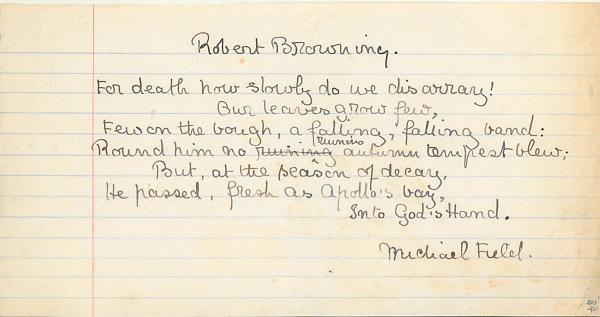 Robert Browning.
For death how slowly do we disarray!
Our leaves grow few,
Few on the bough, a falling, falling band:
ruinous
Round him no ruining autumn tempest blew;
But, at the season of decay,
He passed, fresh as Apollo's bay,
Into God's Hand.
Michael Field.